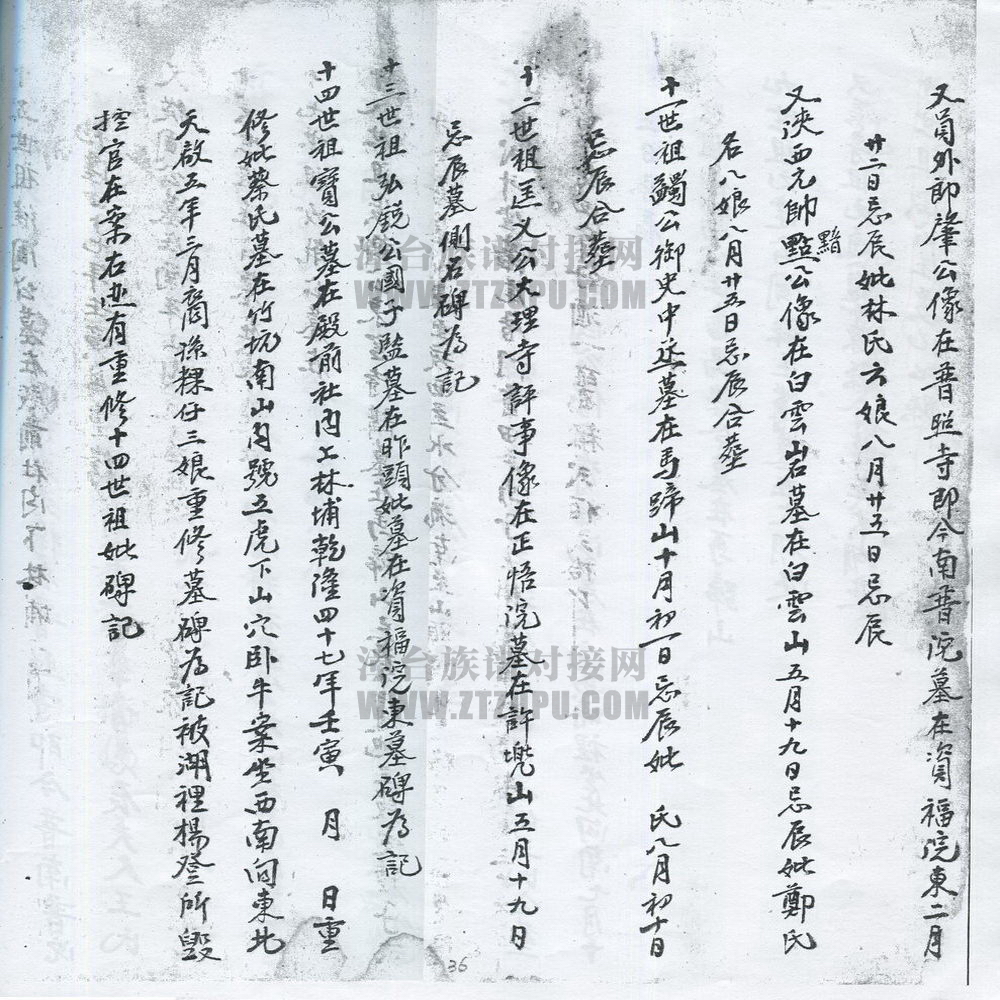 又員外郎肇公像在普照寺即今南普院墓在資福院東二月
廿二日忌辰妣林氏六娘八月廿五日忌辰
又浹西元帥點公像在白雲岩墓在白雲山五月十九日忌辰妣鄭氏
黯
名八娘八月廿五日忌辰合葬
十一世祖鐲公御史中丞墓在馬蹄山十月初一日忌辰妣 氏八月初十日
忌辰合葬
十二世祖匡义公大理寺評事像在正悟浣墓在許兠山五月十九日
忌辰墓側石碑為記
十三世祖弘銳公國子監墓在昨頭妣墓在資福浣東墓碑為記
十四世祖寶公墓在殿前社內上林埔乾隆四十七年壬寅 月 日重
修妣蔡氏墓在竹坑南山內號五虎下山穴卧牛案坐西南向東北
天啟五年三月裔孫粿仔三娘重修墓碑為記被湖裡楊登所毀
控官在案右迹有重修十四世祖妣碑記
36
漳台族谱对接网
WWW.ZTZUPU.COM
漳台族谱对接网
WWW.ZTZUPU.COM